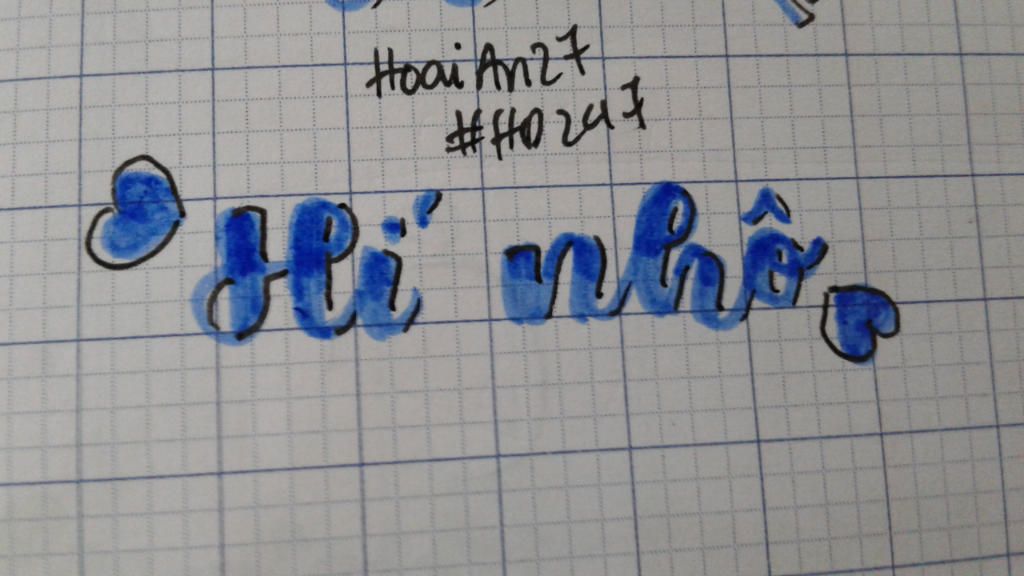 HoaiAn27
#HD247
Hí nhô